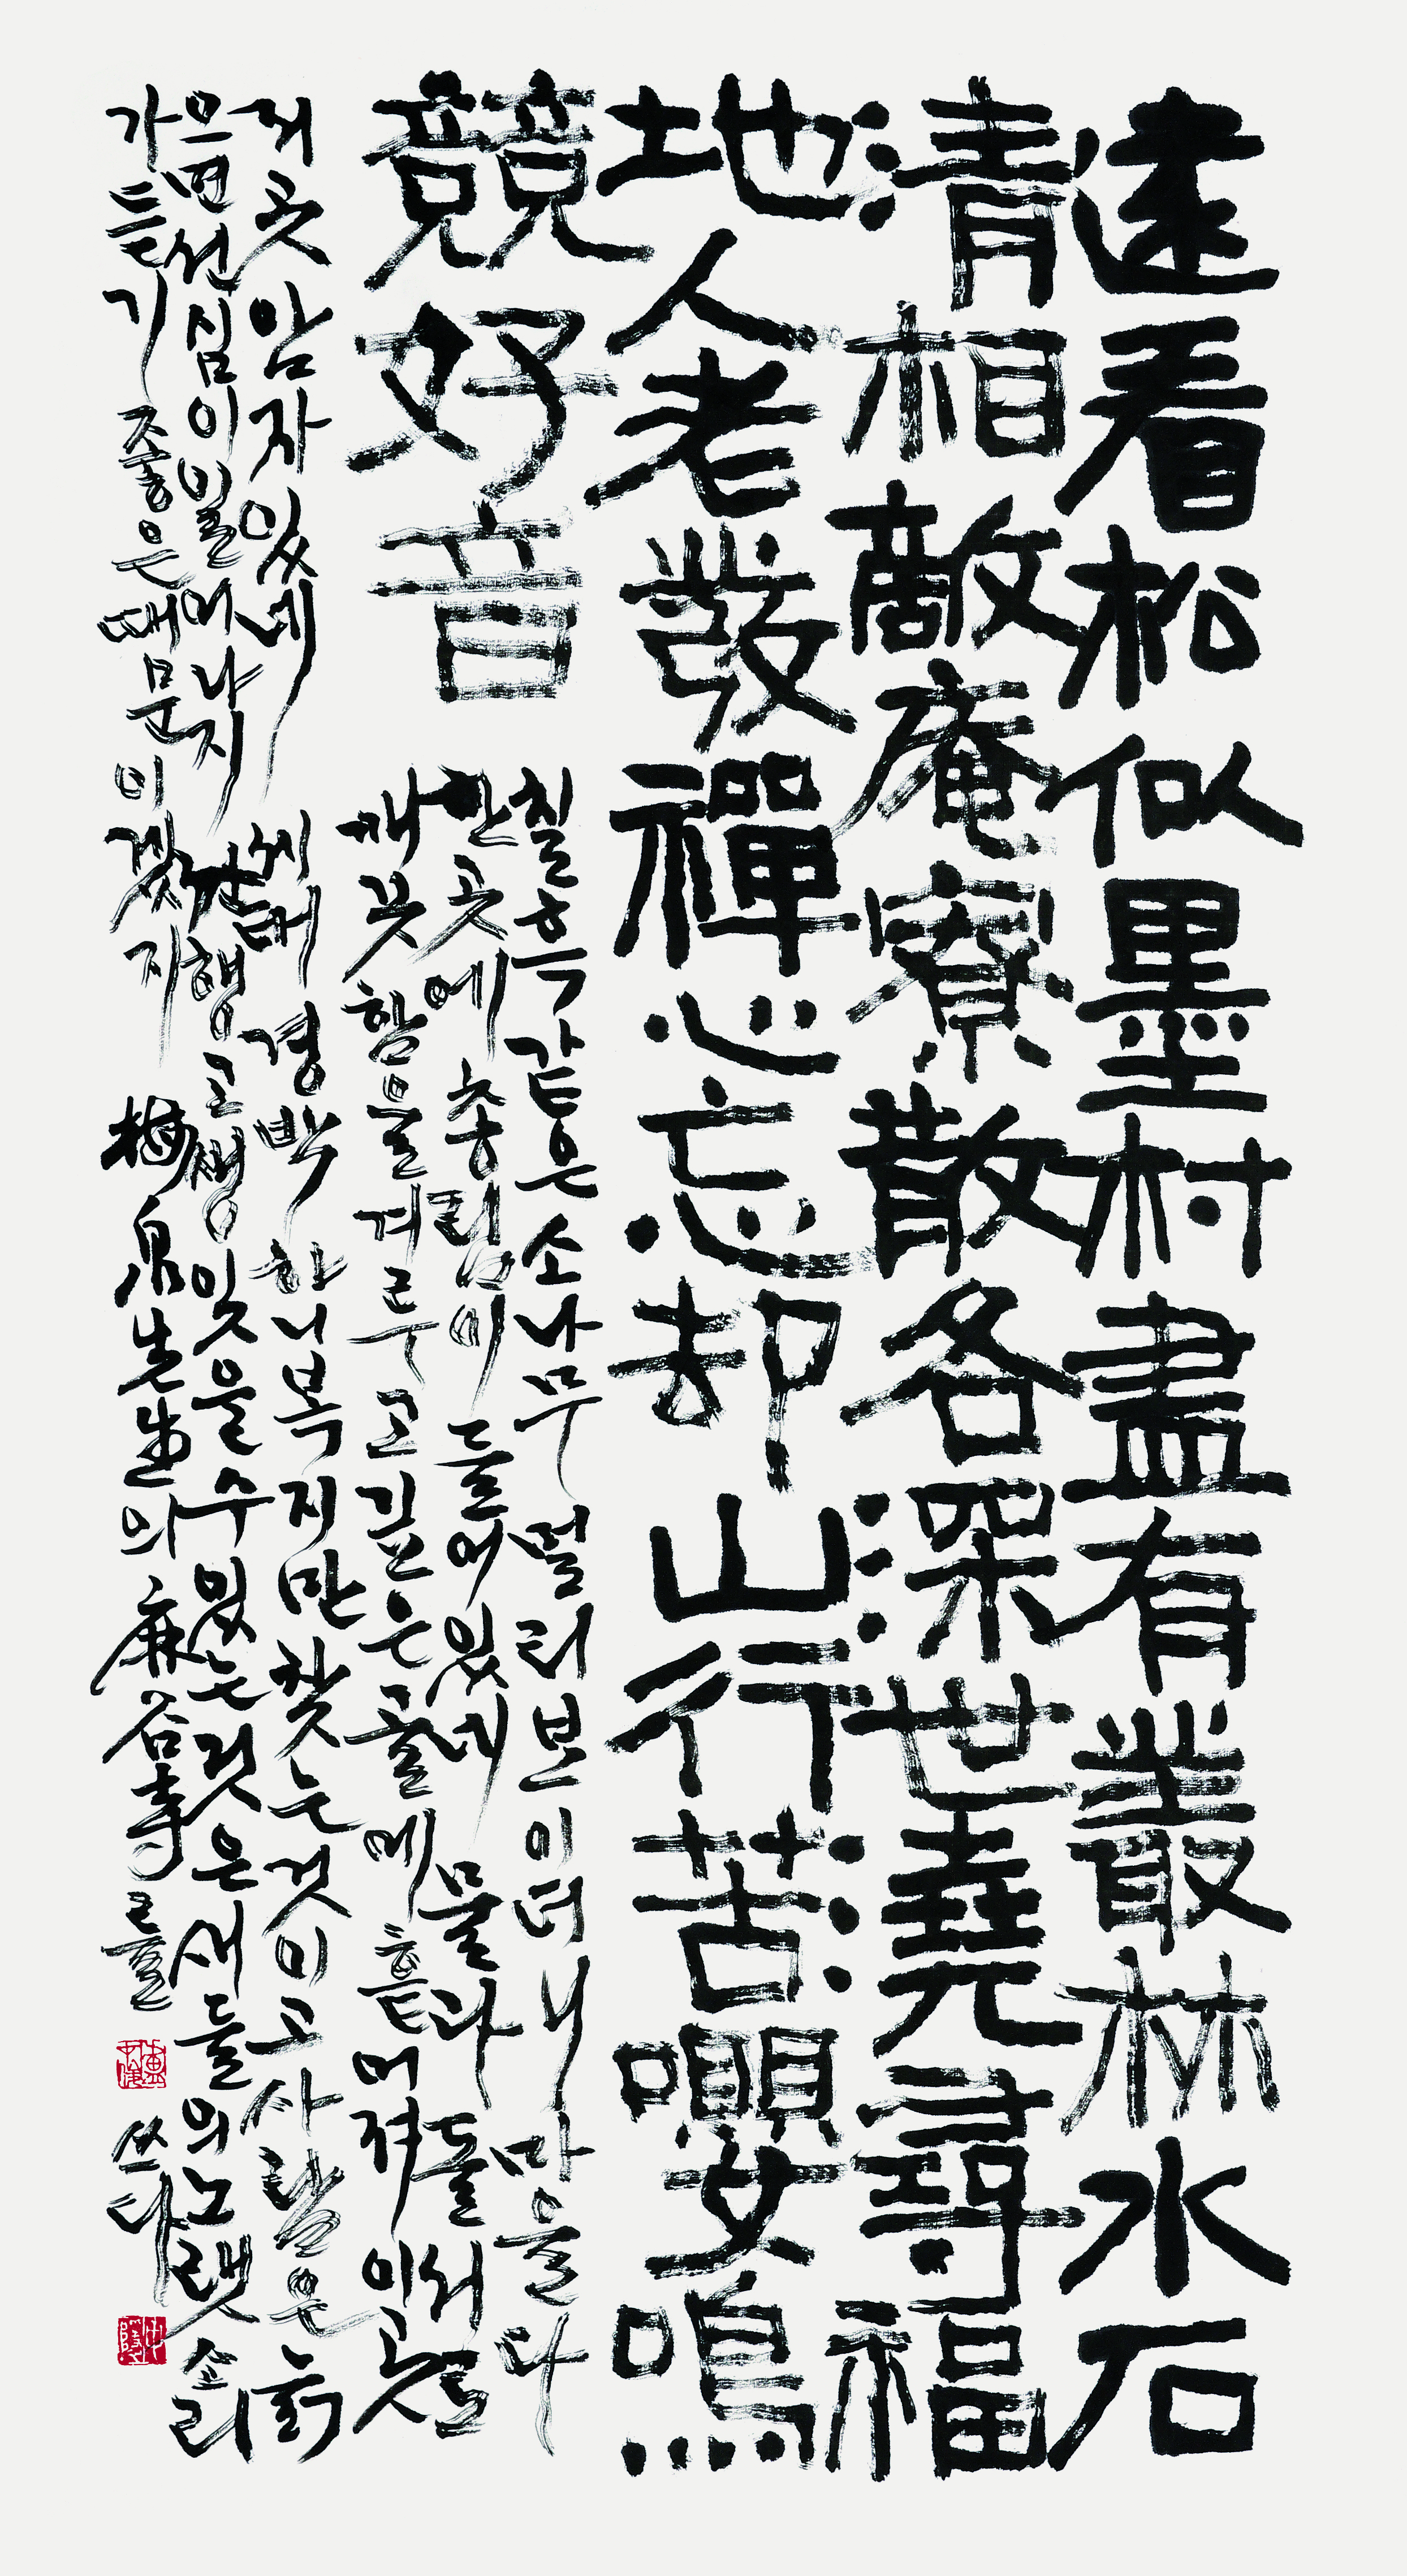 遠看松似墨村盡有叢林水石
清相敵庵寮散各深世澆尋福
地人老發禪心忘却山行苦嚶鳴
競好音
칠흑 같은 소나무 멀리 보이더니 마을 다
한 곳에 총림이 들어 있네 물과 돌 서로
깨끗함을 겨루고 깊은 골에 흩어져 이곳
저곳 암자 있네 세태 경박하니 복지만 찾는 것이고 사람은 늙
으면 선심이 일어나지 산행 고생 잊을 수 있는 것은 새들의 노랫소리
가 듣기 좋은 때문이겠지 梅泉先生의 麻谷寺를 쓰다